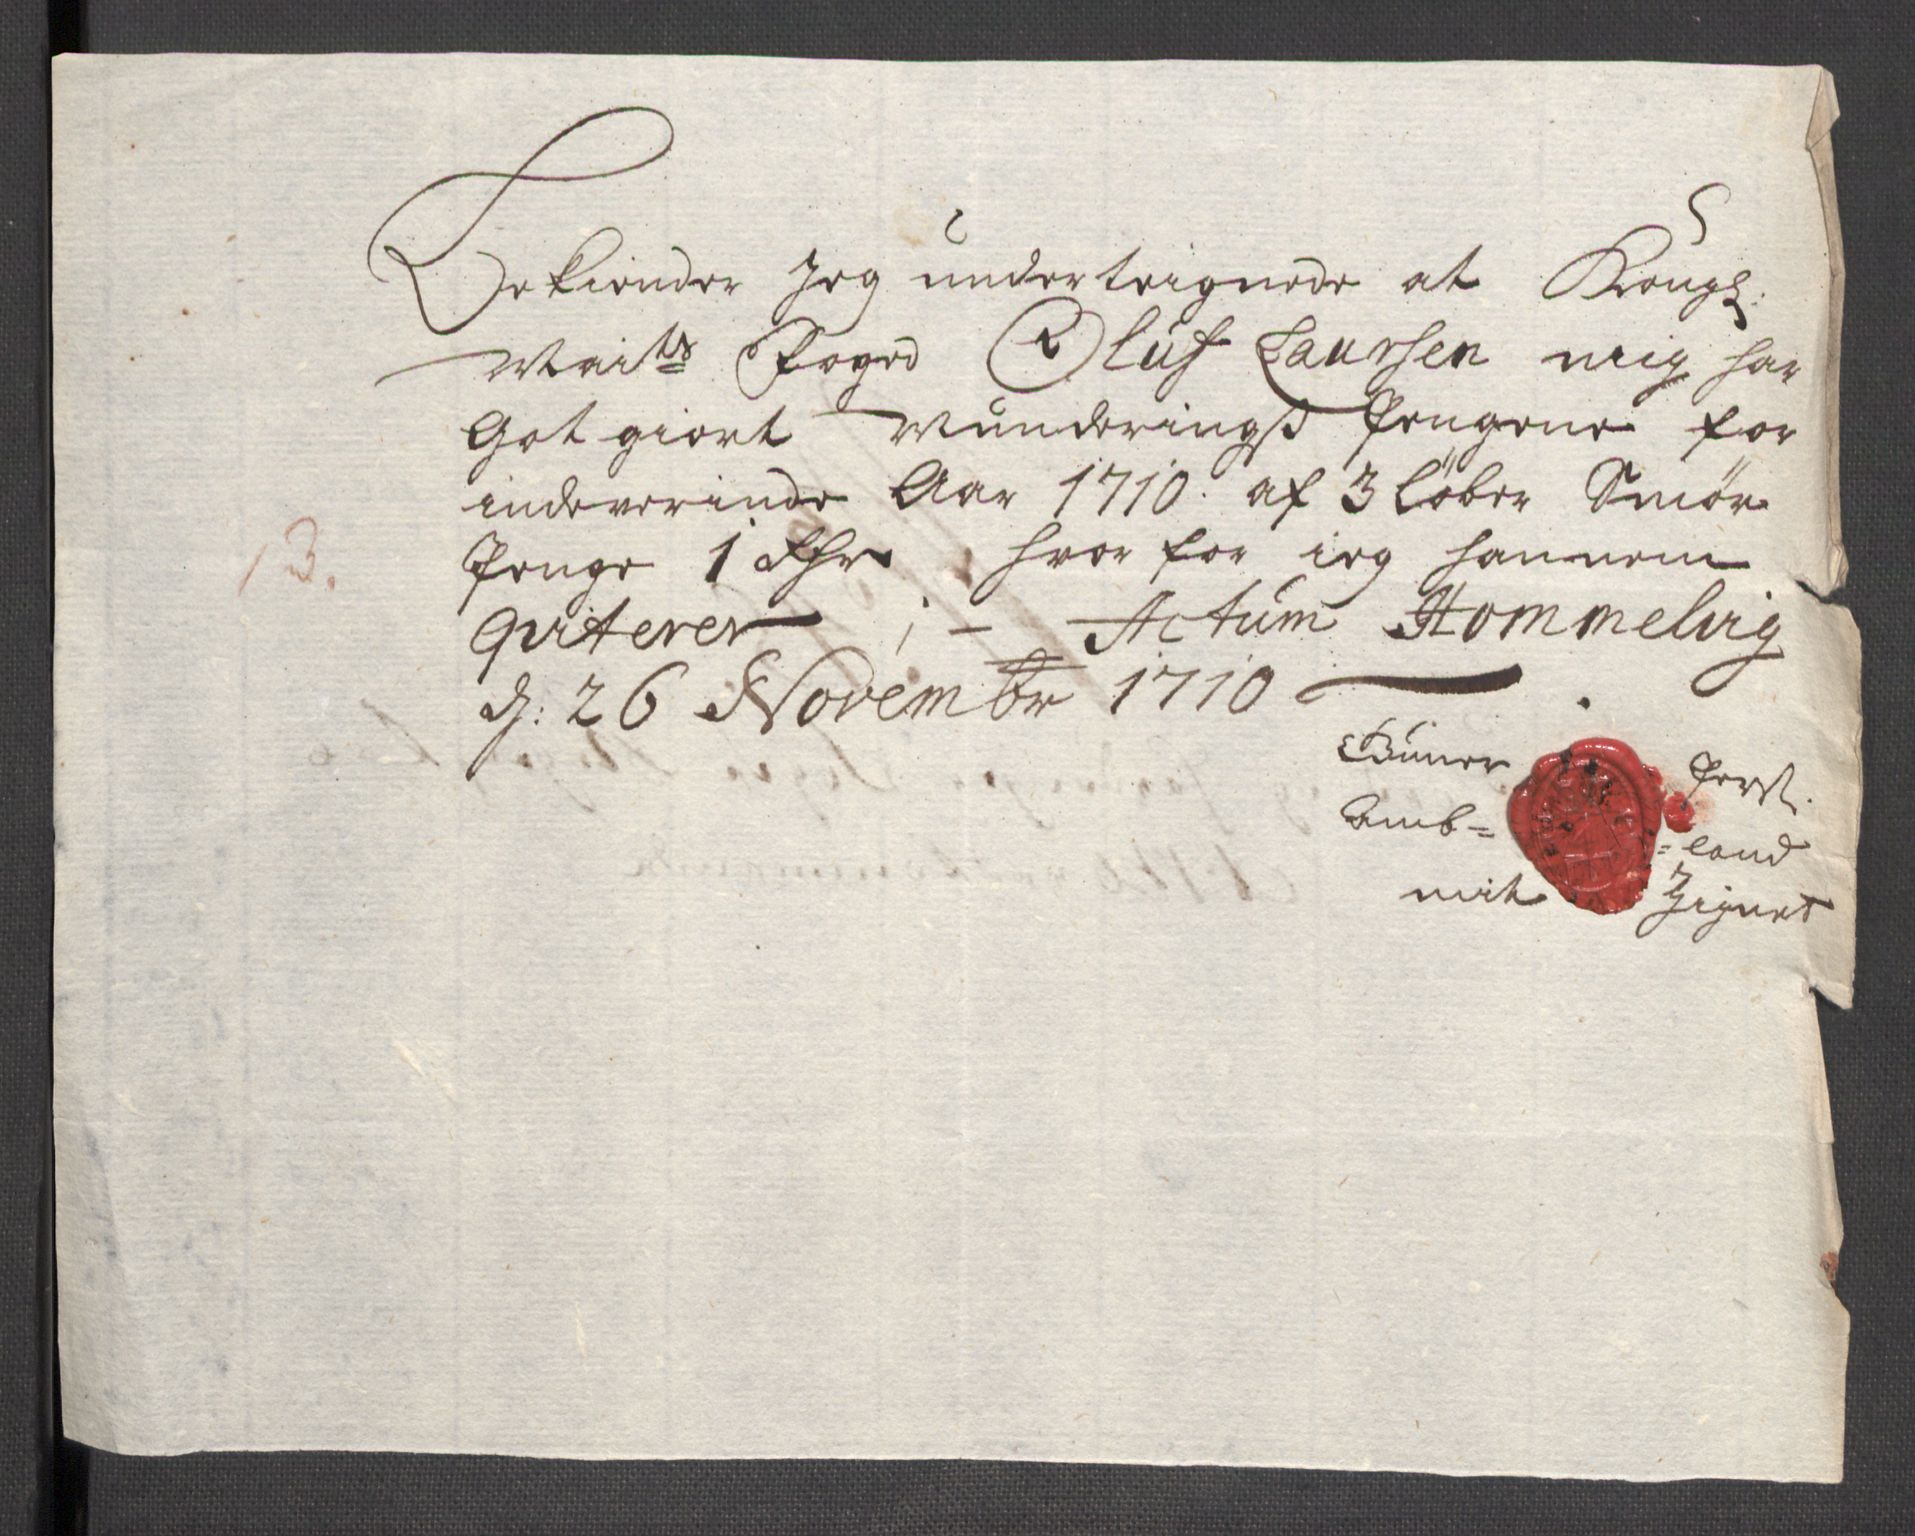 Bekiender Jeg underteignede at Kongl:
Maits Foged Oluf Laursen mig har
Got giort Munderingß Pengene for
indeverende Aar 1710. af 3 Löber Smör
Penge 1 Rhr hvor for ieg hannem
qviterer ; — Actum Hommelvig
d: 26 Novembr 1710
13.
Gunner Pers:
Amb= =land
mit Zignet